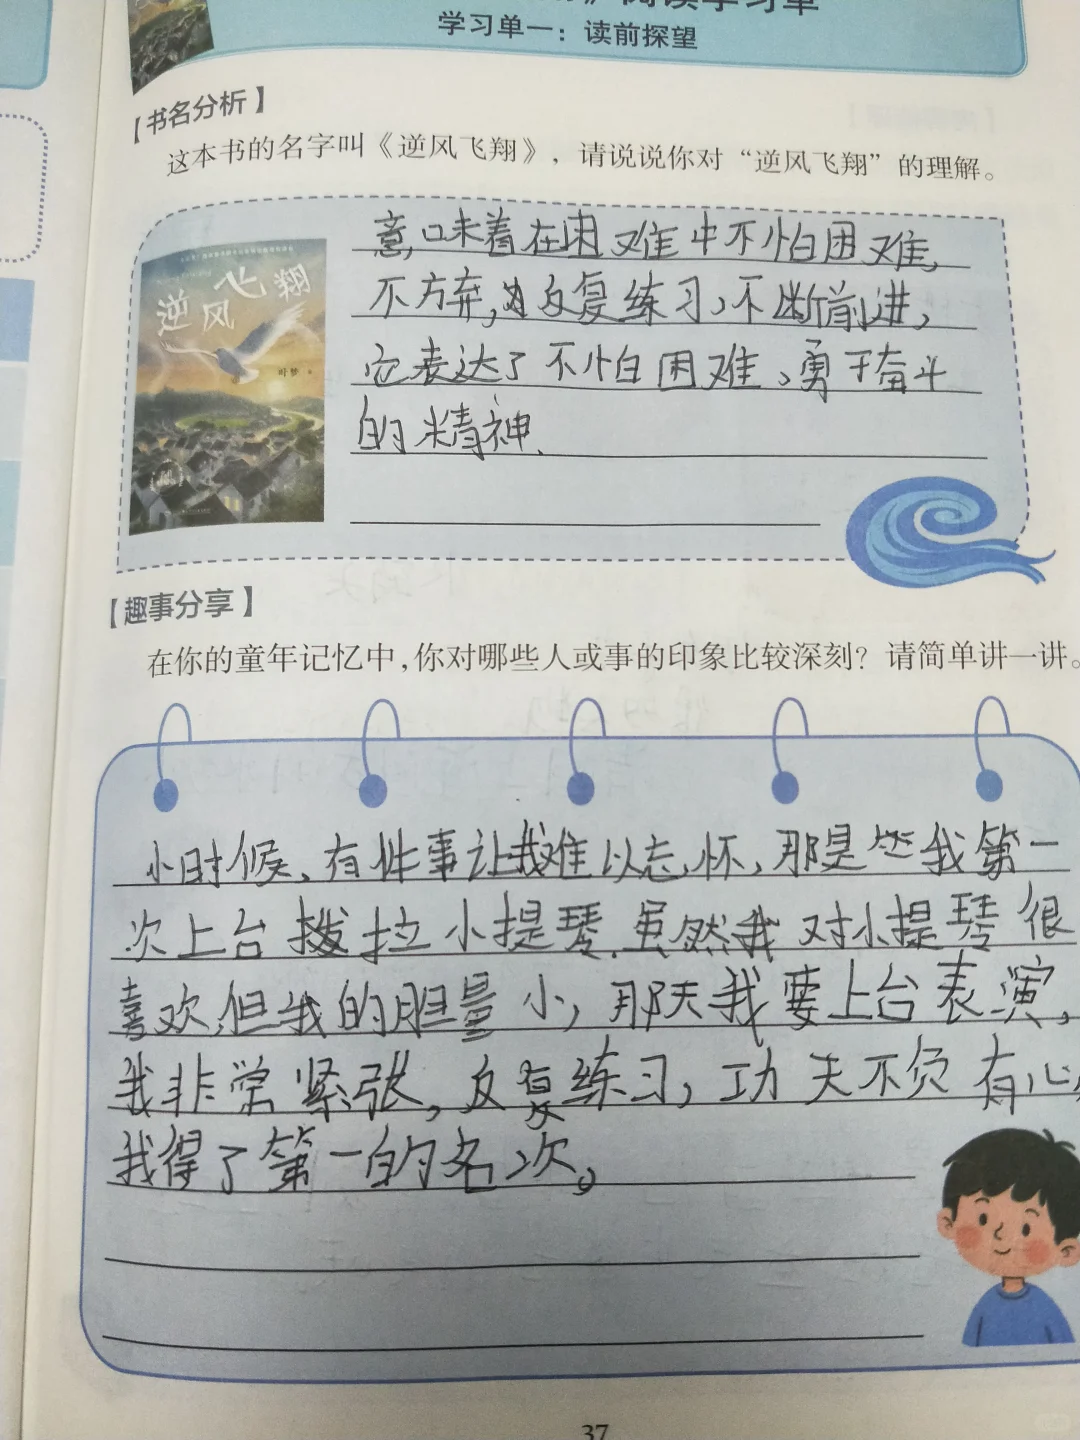 阅读学习单
学习单一：读前探望
【书名分析】
这本书的名字叫《逆风飞翔》，请说说你对“逆风飞翔”的理解。
逆风飞翔
叶梦
意味着在困难中不怕困难，
不方弃，反复练习，不断前进，
它表达了不怕困难、勇于奋斗
的精神.
【趣事分享】
在你的童年记忆中，你对哪些人或事的印象比较深刻？请简单讲一讲。
小时候、有件事让我难以忘怀，那是我第一
次上台拉小提琴.虽然我对小提琴很
喜欢，但我的胆量小，那天我要上台表演，
我非常紧张，反复练习，功夫不负有心
我得了第一的名次。
37